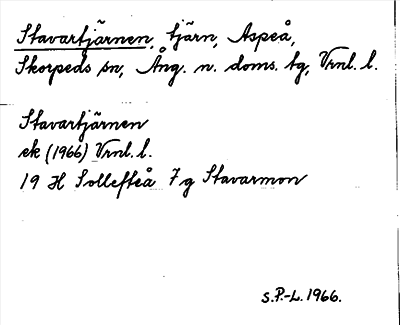 Stavartjärnen, tjärn, Aspeå,
Skorpeds sn, Ång. n. doms. tg, Vrnl. l.
Stavartjärnen
ek (1966) Vrnl. l.
19 H Sollefteå 7 g Stavarmon
S.P.-L. 1966.